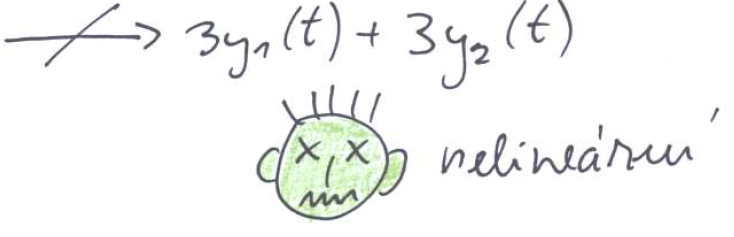 ↛ 3y₁(t) + 3y₂(t)
nelineární